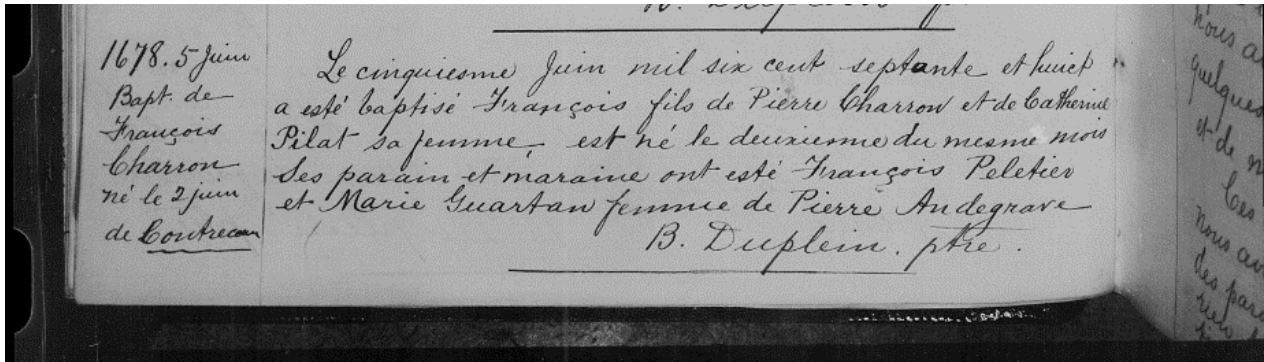 1678. 5 Juin
Bapt. de
François
Charron
né le 2 juin
de Contrecœur
Le cinquiesme Juin mil six cent septante et huict
a esté baptisé François fils de Pierre Charron et de Catherine
Pilat sa femme, est né le deuxiesme du mesme mois
Ses parain et maraine ont esté François Peletier
et Marie Guartan femme de Pierre Andegrave
B. Duplein. ptre.
nous a
quelques
et de
Ces
nous av
des par
rien